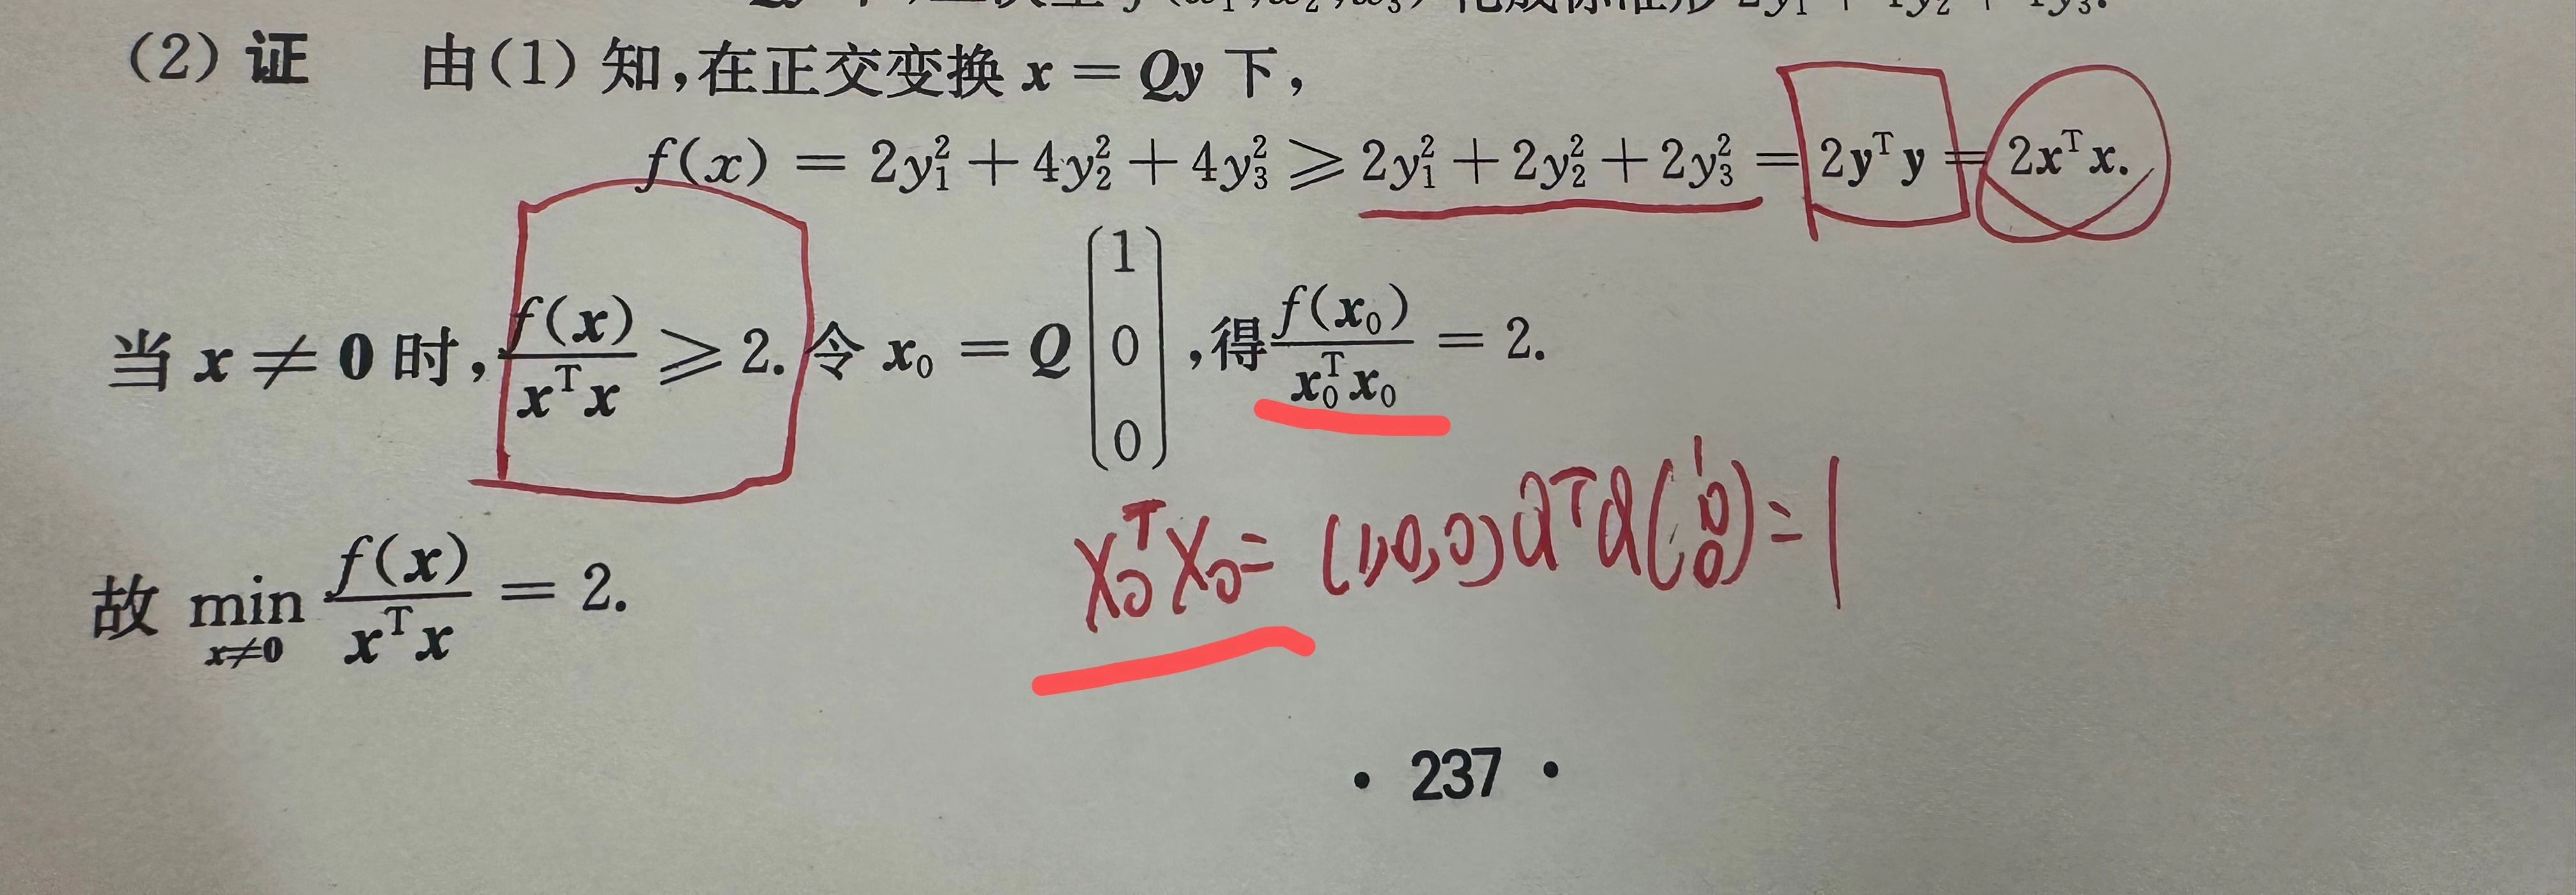 (2) 证 由(1)知,在正交变换 x = Qy 下,
f(x) = 2y₁² + 4y₂² + 4y₃² ⩾ 2y₁² + 2y₂² + 2y₃² = 2yᵀy = 2xᵀx.
当 x ≠ 0 时, f(x)/xᵀx ⩾ 2. 令 x₀ = Q(1 0 0), 得 f(x₀)/x₀ᵀx₀ = 2.
X₀ᵀX₀ = (1,0,0)QᵀQ(1 0 0) = 1
故 min x≠0 f(x)/xᵀx = 2.
· 237 ·